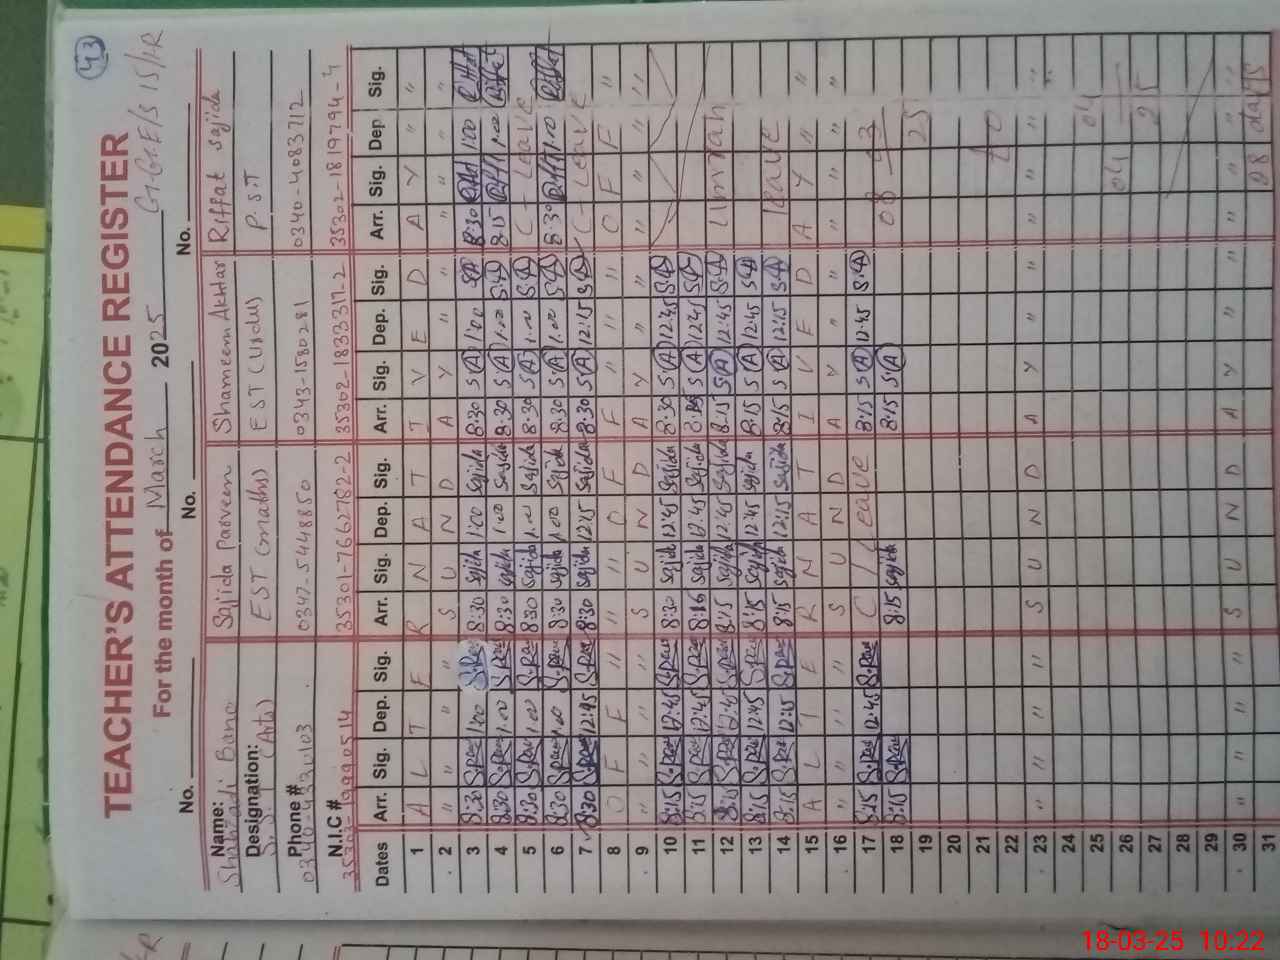 43
TEACHER'S ATTENDANCE REGISTER
For the month of March 2025 GGE/S 15/1R
No. No. No.
Name: Shahzadi Bano Sajida Parveen Shameem Akhtar Riffat Sajida
Designation: (Arts) EST (maths) EST (Urdu) P.S.T
Phone # 0340-4330103 0347-5448850 0343-1580281 0340-4083712
N.I.C # 35301-7662782-2 35302-1833317-2 35302-1819794-4
Dates Arr. Sig. Dep. Sig. Arr. Sig. Dep. Sig. Arr. Sig. Dep. Sig. Arr. Sig. Dep Sig.
1 A L T E R N A T I V E D A Y " "
2 " " " " S U N D A Y " " " " " "
3 8:30 S.Par 1:00 S.Par 8:30 Sajida 1:00 Sajida 8:30 S(A) 1:00 S(A) 8:30 Riffat 1:00 Riffat
4 8:30 S.Par 1.00 S.Par 8:30 Sajida 1:00 Sajida 8:30 S(A) 1.00 S(A) 8:15 Riffat 1.00 Riffat
5 8:30 S.Par 1.00 S.Par 8:30 Sajida 1.00 Sajida 8:30 S(A) 1.00 S(A) C - Leave
6 8:30 S.Par 1.00 S.Par 8:30 Sajida 1.00 Sajida 8:30 S(A) 1.00 S(A) 8:30 Riffat 1.00 Riffat
7 8:30 S.Par 12:15 S.Par 8:30 Sajida 12:15 Sajida 8:30 S(A) 12:15 S(A) C - Leave
8 O F F " " " O F F " " " O F F "
9 " " " " S U N D A Y " " " " " "
10 8:15 S.Par 12:45 S.Par 8:30 Sajida 12:45 Sajida 8:30 S(A) 12:45 S(A)
11 8:15 S.Par 12:45 S.Par 8:16 Sajida 12:45 Sajida 8:15 S(A) 12:45 S(A)
12 8:15 S.Par 12:45 S.Par 8:15 Sajida 12:45 Sajida 8:15 S(A) 12:45 S(A) Umrah
13 8:15 S.Par 12:45 S.Par 8:15 Sajida 12:45 Sajida 8:15 S(A) 12:45 S(A)
14 8:15 S.Par 12:15 S.Par 8:15 Sajida 12:15 Sajida 8:15 S(A) 12:15 S(A) leave
15 A L T E R N A T I V E D A Y " "
16 " " " " S U N D A Y " " " " " "
17 8:15 S.Par 12:45 S.Par C / Leave 8:15 S(A) 12:45 S(A)
18 8:15 S.Par 8:15 Sajida 8:15 S(A) 08 03
19 25
20
21 to
22
23 " " " " S U N D A Y " " " " " "
24
25 04
26 04
27 25
28
29
30 " " " " S U N D A Y " " " " " "
31 28 days
18-03-25 10:22